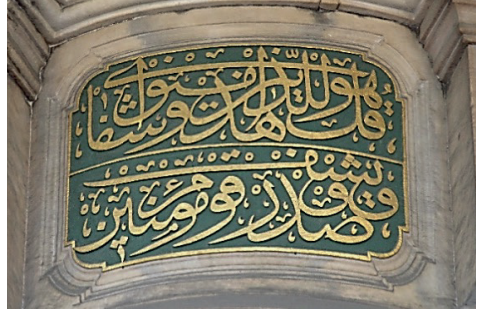 قل هو للذين آمنوا هدى وشفاء
ويشف صدور قوم مؤمنين